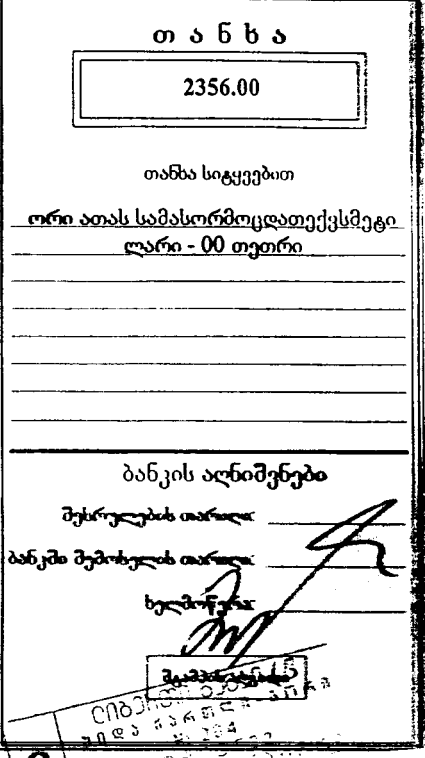 თანხა
2356.00
თანხა სიტყვებით
ორი ათას სამასორმოცდათექვსმეტი
ლარი - 00 თეთრი
ბანკის აღნიშვნები
შესრულების თარიღი:
ბანკში შემოსვლის თარიღი:
ხელმოწერა: